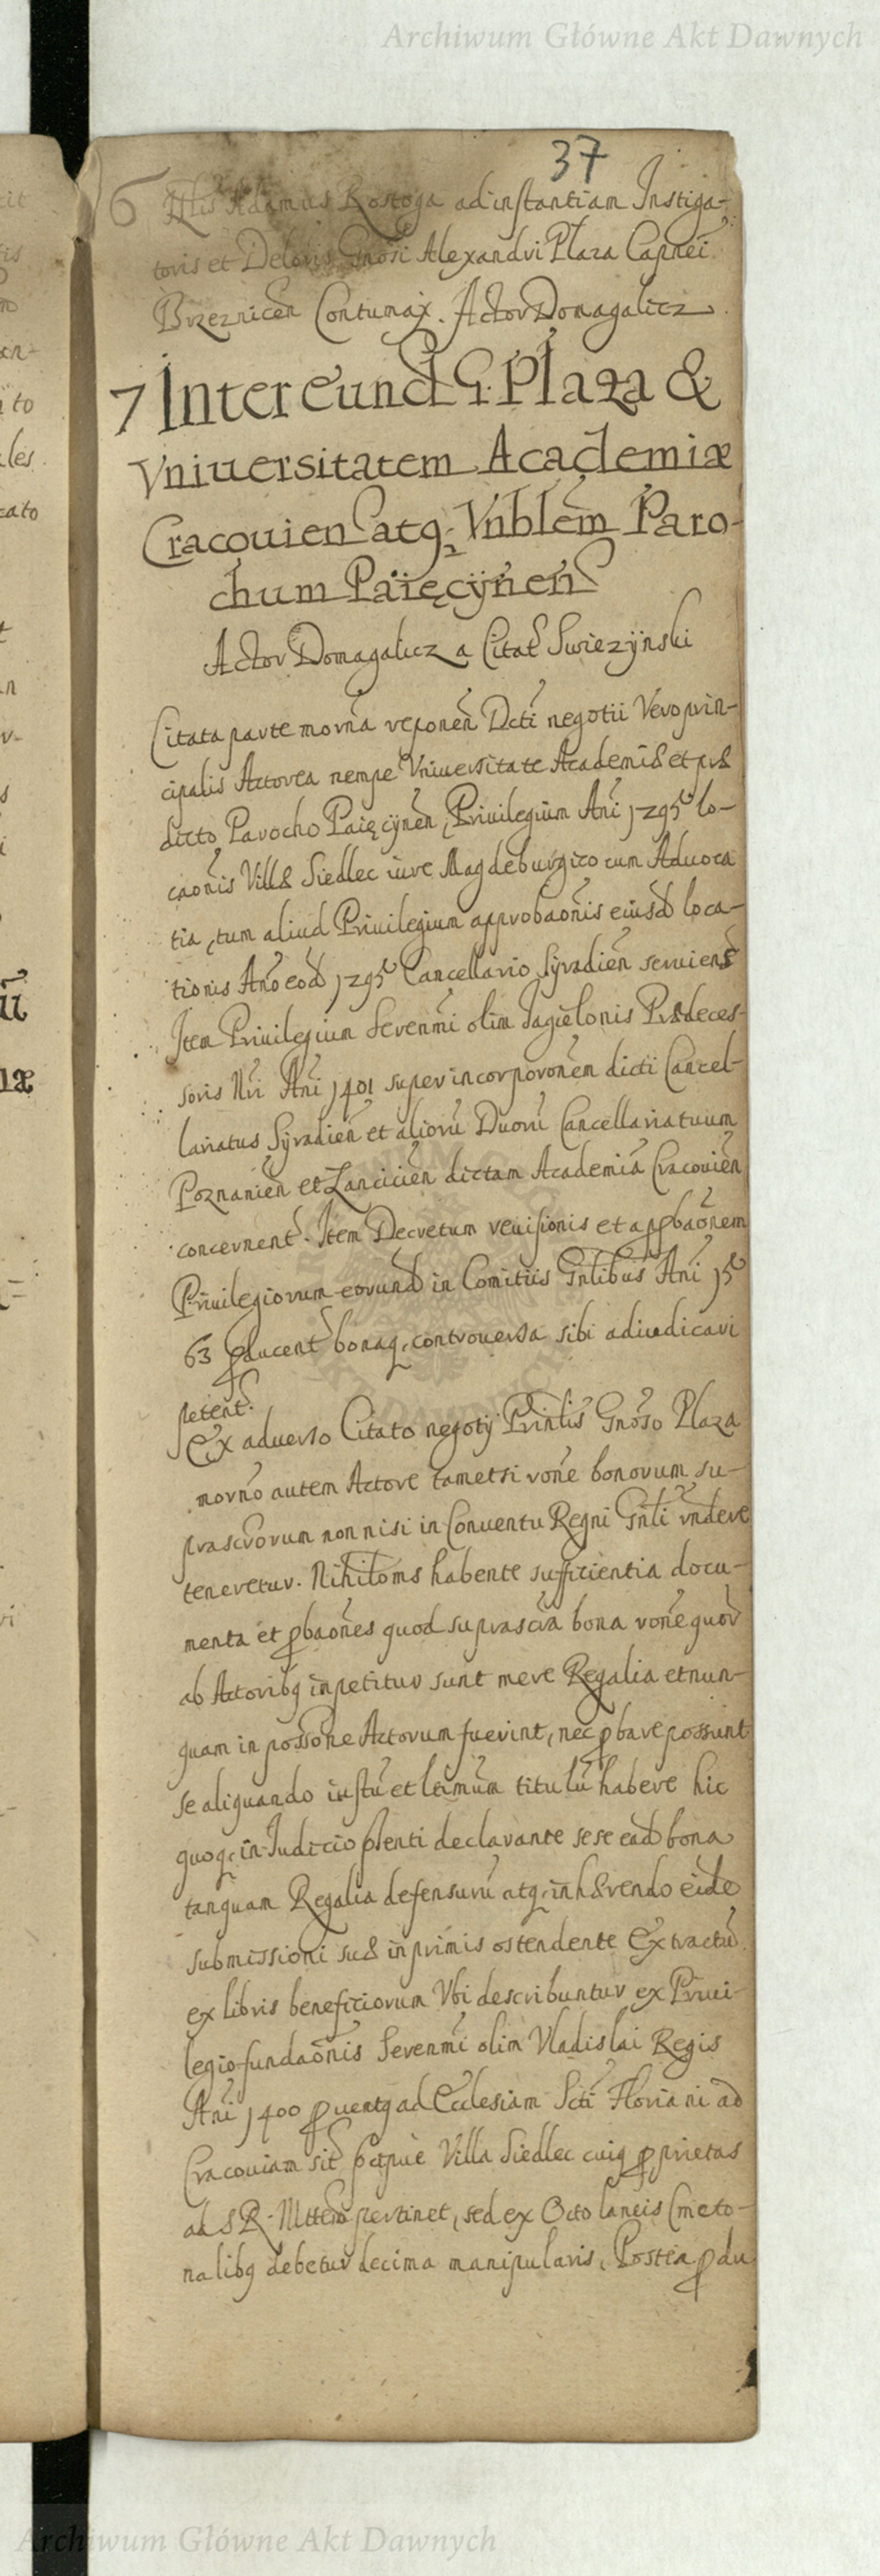 Archiwum Główne Akt Dawnych
37
6 Adamus Rostoga ad instantiam Instiga-
toris et Delatoris Gnosi Alexandri Plaza Capnei
Brzeznicen Contumax. Actor Domagalicz
7 Inter eund G. Plaza &
Vniuersitatem Academiæ
Cracouien atq; Vnblem Paro-
chum Paięcÿnen
Actor Domagalicz a Citat Swiezÿnski
Citata parte morna reponen Dcti negotii Vero prin-
cipalis Actorea nempe Vniuersitate Academiæ et præ
dicto Parocho Paięcÿnen, Priuilegium Ani 1295 lo-
caonis Villæ Siedlec iure Magdeburgico cum Aduoca
tia, tum aliud Priuilegium approbaonis eiusd loca-
tionis Ano eod 1295 Cancellario Sÿradien seruiens
Item Priuilegium Serenmi olim Jagielonis Prædeces-
soris Nri Ani 1401 super incorporonem dicti Cancel-
lariatus Sÿradien et aliorũ Duorũ Cancellariatuum
Poznanien et Lancicien dictam Academiã Cracouien
concernent. Item Decretum reuisionis et approbaonem
Priuilegiorum eorund in Comitiis Gnlibus Ani 15
63 producent bonaq; controuersa sibi adiudicari
petent.
Ex aduerso Citato negotÿ Prinlis Gnoso Plaza
morno autem Actore tametsi rone bonorum su-
prascrorum non nisi in Conuentu Regni Gnli rndere
teneretur. Nihiloms habente sufficientia docu-
menta et probaones quod suprascra bona rone quor
ab Actoribq inpetitur sunt mere Regalia et nun-
quam in possone Actorum fuerint, nec probare possunt
se aliquando iustũ et ltimum titulũ habere hic
quoq; in Iudicio pnti declarante sese ead bona
tanquam Regalia defensurũ atq; inhærendo eide
submissioni suæ inprimis ostendente Extractũ
ex libris beneficiorum Vbi describuntur ex Priui-
legio fundaonis Serenmi olim Vladislai Regis
Ani 1400 prouentq ad Ecclesiam Scti Floriani ad
Cracouiam sit pctpue Villa Siedlec cuiq proprietas
ad S R. Mttem pertinet, sed ex Octo laneis Cmeto-
nalibq debetur decima manipularis, Postea produ
Archiwum Główne Akt Dawnych